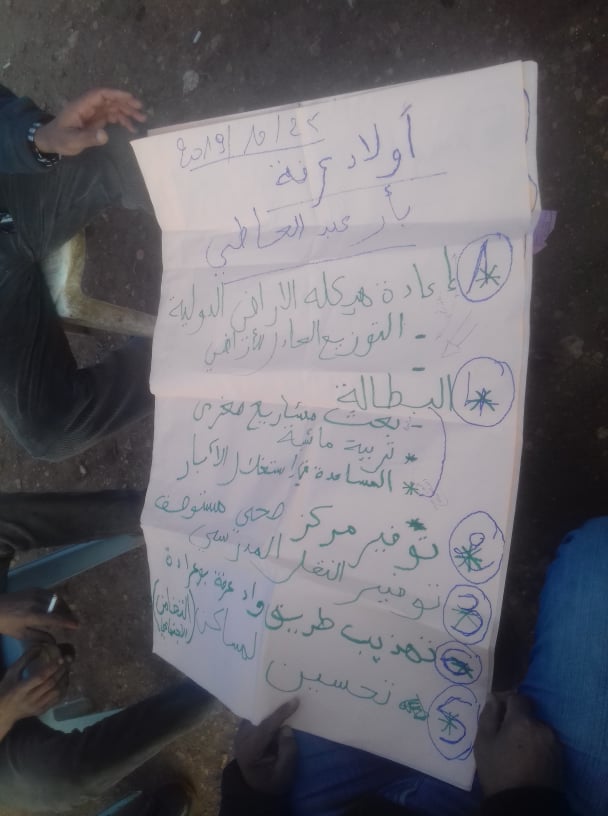 2019/10/22
أولاد عرفة
بأر عبد العاطي
1 * إعادة هيكلة الاراضي الدولية
- التوزيع العادل للأراضي
1 * البطالة
- بعث مشاريع صغرى
* تربية ماشية
* المساعدة في استغلال الآبار
* توفير مركز صحي مستوصف
3 توفير النقل المدرسي
تهذيب طريق واد عرفة بوعرادة
5 * تحسين لمساكن (التضامن الاجتماعي)